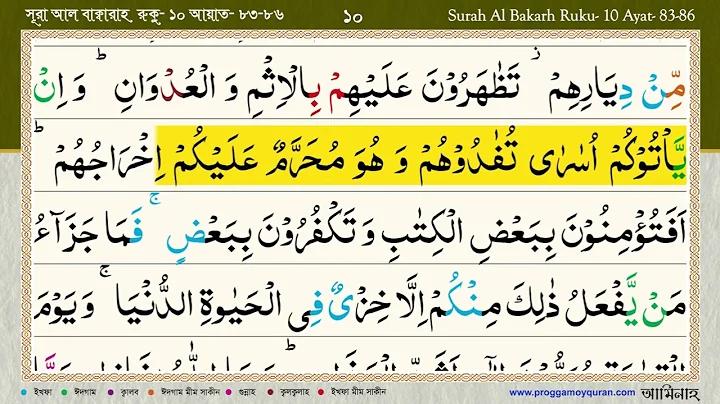 সূরা আল বাক্বারাহ, রুকু- ১০ আয়াত- ৮৩-৮৬
১০
Surah Al Bakarh Ruku- 10 Ayat- 83-86
مِّنْ دِيَارِهِمْ ۫ تَظٰهَرُوْنَ عَلَيْهِمْ بِالْاِثْمِ وَ الْعُدْوَانِ ؕ وَ اِنْ
يَّاْتُوْكُمْ اُسٰرٰى تُفٰدُوْهُمْ وَ هُوَ مُحَرَّمٌ عَلَيْكُمْ اِخْرَاجُهُمْ ؕ
اَفَتُؤْمِنُوْنَ بِبَعْضِ الْكِتٰبِ وَ تَكْفُرُوْنَ بِبَعْضٍ ۚ فَمَا جَزَآءُ
مَنْ يَّفْعَلُ ذٰلِكَ مِنْكُمْ اِلَّا خِزْىٌ فِى الْحَيٰوةِ الدُّنْيَا ۚ وَ يَوْمَ
ইখফা ঈদগাম ক্বালব ঈদগাম মীম সাকীন গুন্নাহ ক্বলক্বলাহ ইখফা মীম সাকীন
www.proggamoyquran.com আমিনাহ